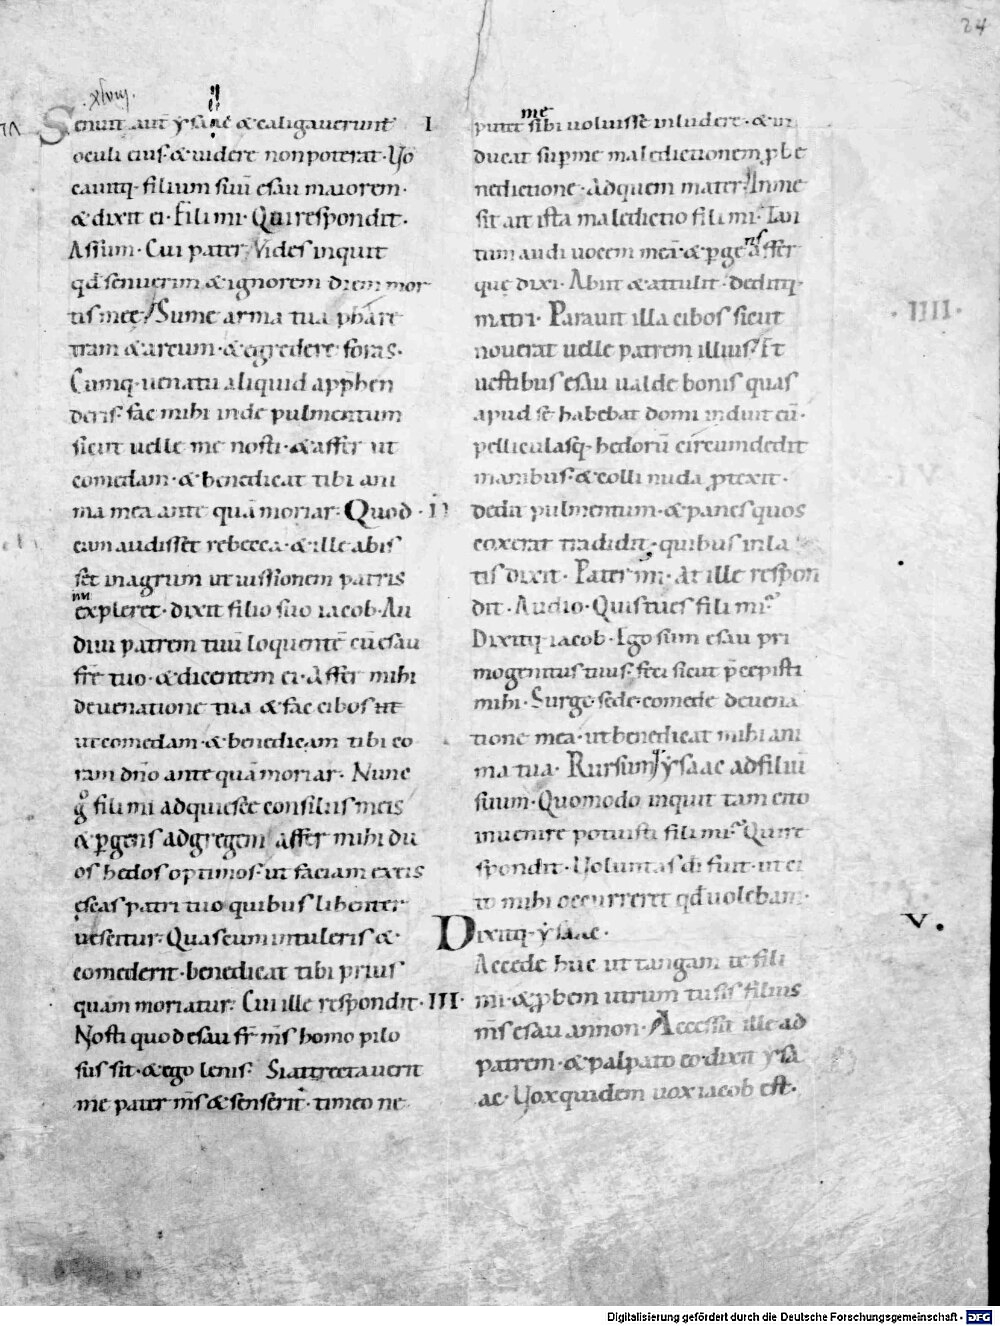 24
.xlviij.
Senuit aut̄ ysaac & caligauerunt I
oculi eius· & uidere non poterat· Uo
cauitq· filium suū esau maiorem·
& dixit ei· Fili mi· Qui respondit·
Assum· Cui pater· Vides inquit
qd̄ senuerim & ignorem diem mor
tis meę· Sume arma tua phare
tram & arcum· & egredere foras·
Cumq· uenatu aliquid app̄hen
deris· fac mihi inde pulmentum
sicut uelle me nosti· & affer ut
comedam· & benedicat tibi ani
ma mea ante quā moriar· Quod · II
cum audisset rebecca· & ille abis
set in agrum ut iussionem patris
expleret· dixit filio suo iacob· Au
diui patrem tuū loquentē cū esau
fr̄e tuo· & dicentem ei· Affer mihi
de uenatione tua & fac cibos ut
ut comedam· & benedicam tibi co
ram dn̄o ante quā moriar· Nunc
gͦ fili mi adquiesce consiliis meis
& p̱gens ad gregem affer mihi du
os hedos optimos· ut faciam ex eis
escas patri tuo quibus libenter
uescitur· Quas cum intuleris &
comederit· benedicat tibi prius
quam moriatur· Cui ille respondit· III·
Nosti quod esau fr̄ m̄s homo pilo
sus sit· & ego lenis· Si attrectauerit
me pater m̄s & senserit· timeo ne
putet me sibi uoluisse inludere· & in
ducat sup̱ me maledictionem p̱ be
nedictione· Ad quem mater· In me
sit ait ista maledictio fili mi· Tan
tum audi uocem meā· & p̱gens affer
quę dixi· Abiit & attulit· deditq·
matri· Parauit illa cibos sicut · IIII·
nouerat uelle patrem illius· Et
uestibus esau ualde bonis quas
apud se habebat domi induit eū·
pelliculasq· hedorū circumdedit
manibus· & colli nuda p̱texit·
dedit pulmentum· & panes quos
coxerat tradidit· quibus inla
tis dixit· Pater mi· At ille respon
dit· Audio· Quis tu es fili mi
Dixitq· iacob· Ego sum esau pri
mogenitus tuus· feci sicut p̄cepisti
mihi· Surge· sede· comede de uena
tione mea· ut benedicat mihi ani
ma tua· Rursum ysaac ad filiū
suum· Quomodo inquit tam cito
inuenire potuisti fili mi· Qui re
spondit· Uoluntas di fuit· ut ci
to mihi occurreret qd̄ uolebam·
Dixitq· ysaac· V.
Accede huc ut tangam te fili
mi· & p̱bem utrum tu sis filius
m̄s esau an non· Accessit ille ad
patrem· & palpato eo dixit ysa
ac· Vox quidem uox iacob est·
Digitalisierung gefördert durch die Deutsche Forschungsgemeinschaft - DFG